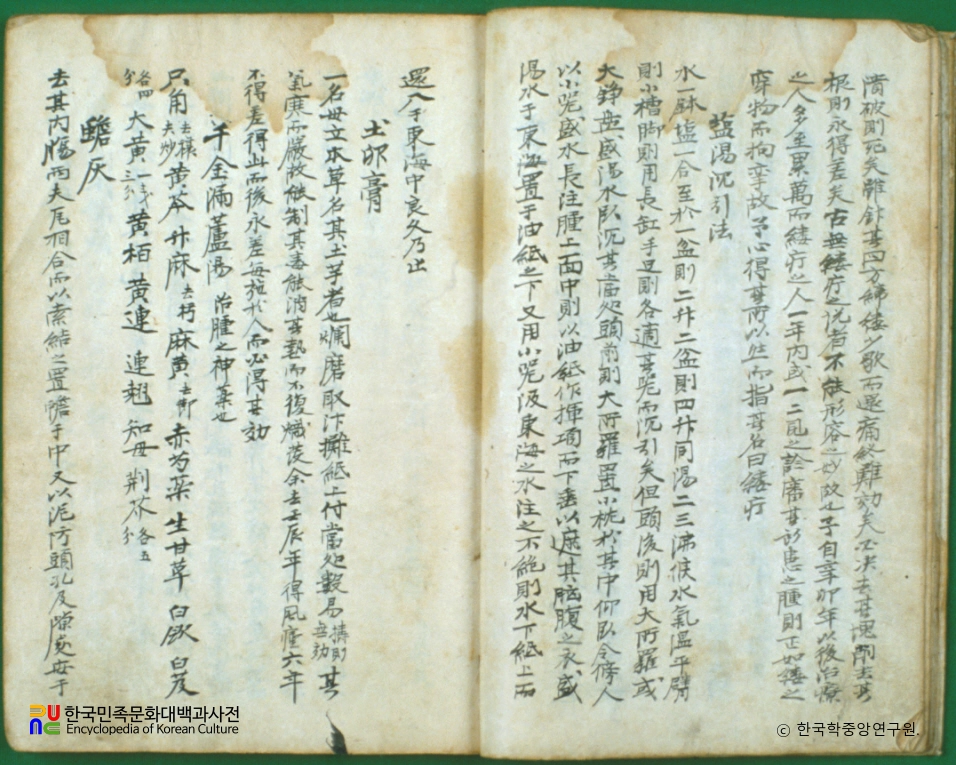 潰破則死矣雖針其四方錦縷少歇而還痛終難効矣必決去其塊
根則永得差矣古無縷疔之說者不能形容之妙故也予自辛卯年以後治療
之人多至累萬而縷疔之人一年內或一二
穿物而拘挛故予心得其所以然而指其名曰縷疔
塩湯沉引法
水一鉢塩一合至於一盆則二升二盆則四升同湯二三沸候水氣溫平臂
則小槽脚則用長缸手足則各適其器而沉引矣但頭後則用大所羅或
大錚盘盛湯水臥沉其當處頭前則大所羅置小枕於其中仰臥令傍人
以小器盛水長注腫上面中則以油紙作揮項而下垂以遮其胸腹之衣盛
湯水于東海置于油紙之下又用小器汲東海之水注之不絶則水下紙上而
還入于東海中良久乃止
土卵膏
一名毋立本草名其土芋者也爛磨取汁攤紙上付當處數易 其
氣寒而 故能制其毒能消其熱而不復熾 余去壬辰年得風腫六年
不得差得此而後永差每施於人而必得其効
千金漏蘆湯 治腫之神藥也
犀角 黄芩 升麻 麻黄 赤芍藥 生甘草 白斂 白芨
各四分 大黄 黄栢 黄連 連翹 知母 荆芥 各五分
蟾灰
去其內腸兩夫瓦相合而以索結之置蟾于中又以泥防頭孔及隙處毋于
한국민족문화대백과사전
Encyclopedia of Korean Culture
© 한국학중앙연구원.